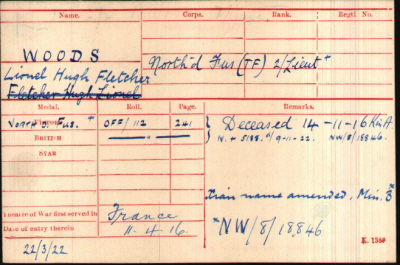 Name. Corps. Rank. Regtl No.
WOODS
North'd Fus (TF) 2/Lieut +
Lionel Hugh Fletcher
Fletcher Hugh Lionel
Medal. Roll. Page. Remarks.
VICTORY
North'd. Fus. + OFF/112 241 Deceased 14-11-16 K in A
BRITISH " " N. + 5188. d/9-11-22. NW/8/18846.
STAR
Xian name amended, Min. B
Theatre of War first served in France
*NW/8/18846
Date of entry therein 11.4.16.
22/3/22
K. 1380